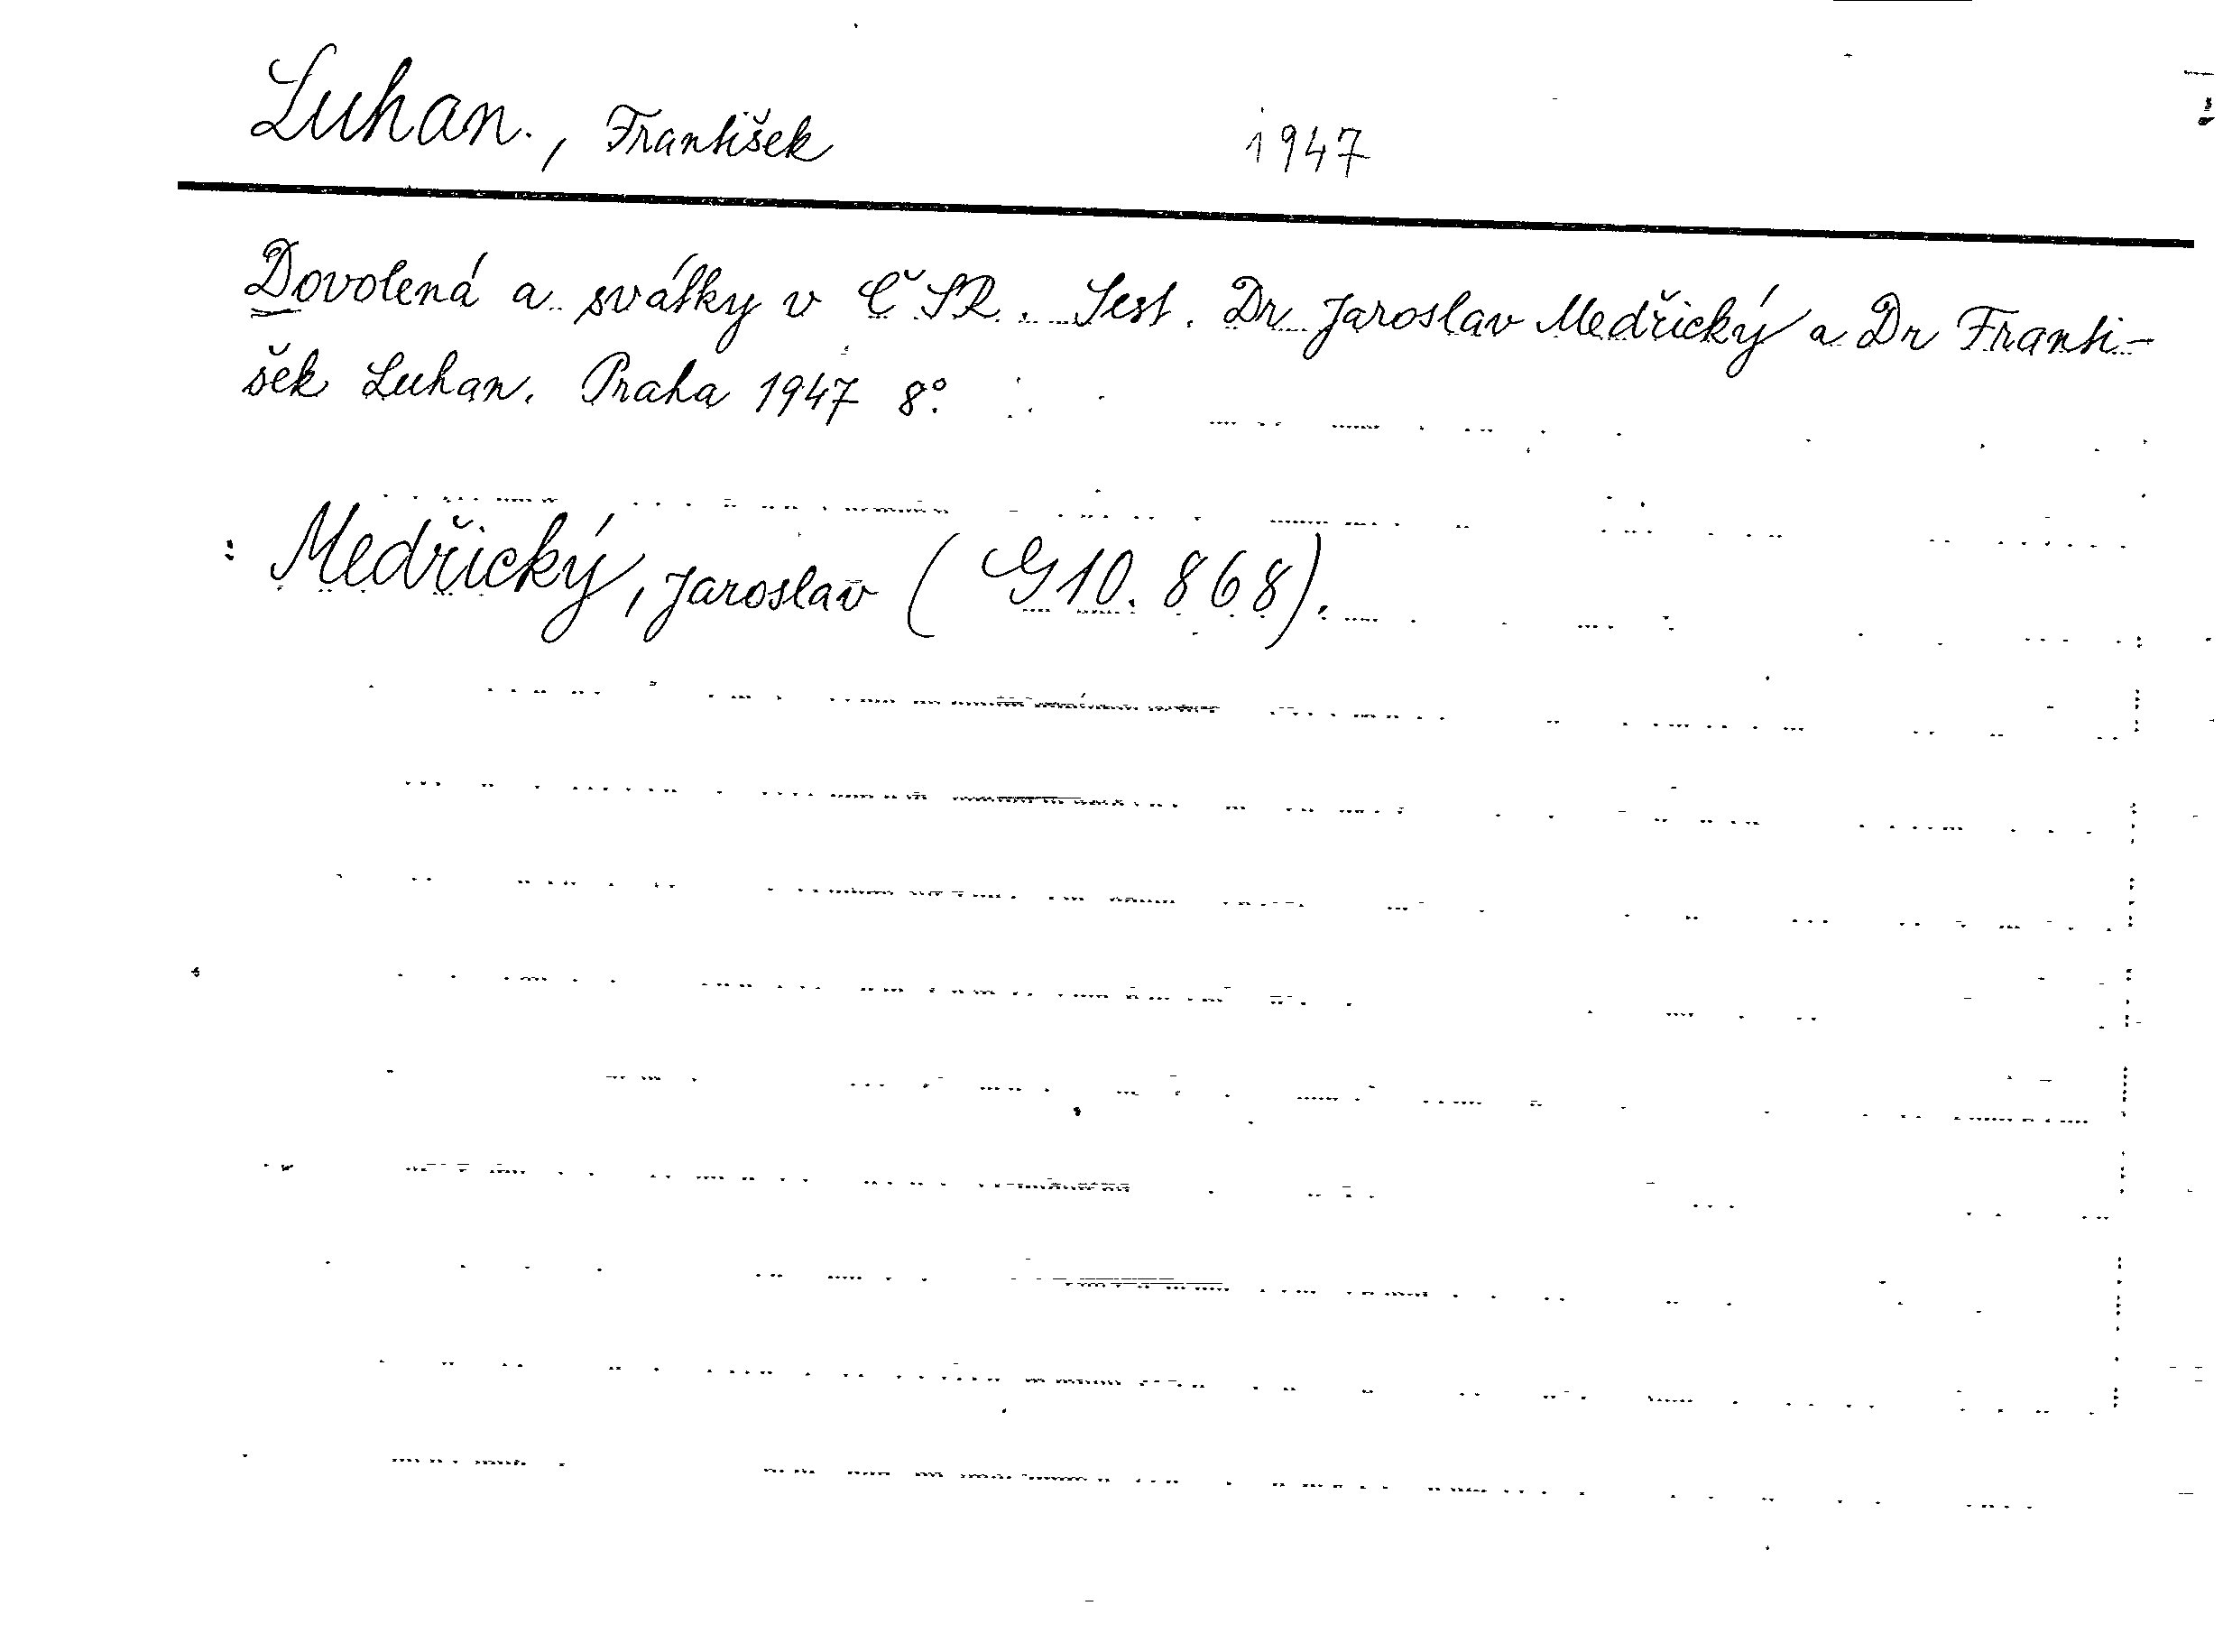 Luhan., František 1947
Dovolená a svátky v ČSR. Sest. Dr Jaroslav Medřický a Dr Franti-
šek Luhan. Praha 1947 8°.
: Medřický, Jaroslav (G10.868).